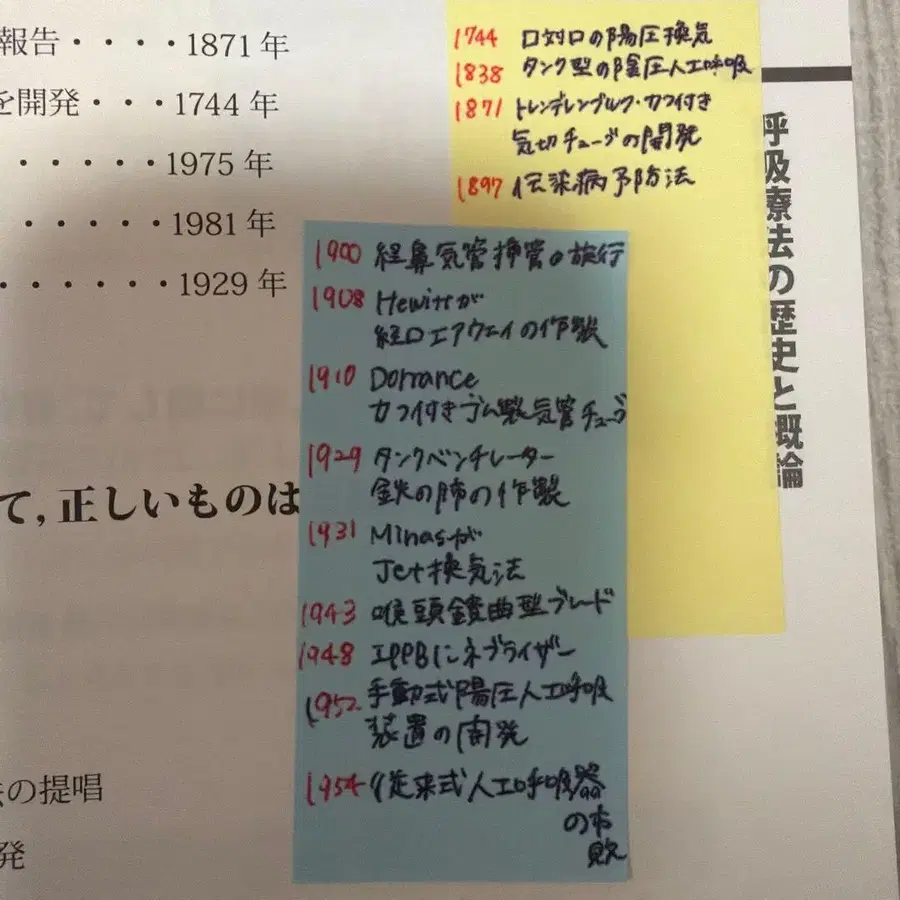 報告・・・・1871年
を開発・・・1744年
・・・・・1975年
・・・・・1981年
・・・・・・1929年
て,正しいものは
の提唱
発
呼吸療法の歴史と概論
1744 口対口の陽圧換気
1838 タンク型の陰圧人工呼吸
1871 トレンデレンブルク・カフ付き
気切チューブの開発
1897 伝染病予防法
1900 経鼻気管挿管の施行
1908 Hewittが
経口エアウェイの作製
1910 Dorrance
カフ付きゴム製気管チューブ
1929 タンクベンチレーター
鉄の肺の作製
1931 Minasが
Jet換気法
1943 喉頭鏡曲型ブレード
1948 IPPBにネブライザー
1952 手動式陽圧人工呼吸
装置の開発
1954 従来式人工呼吸器
の市